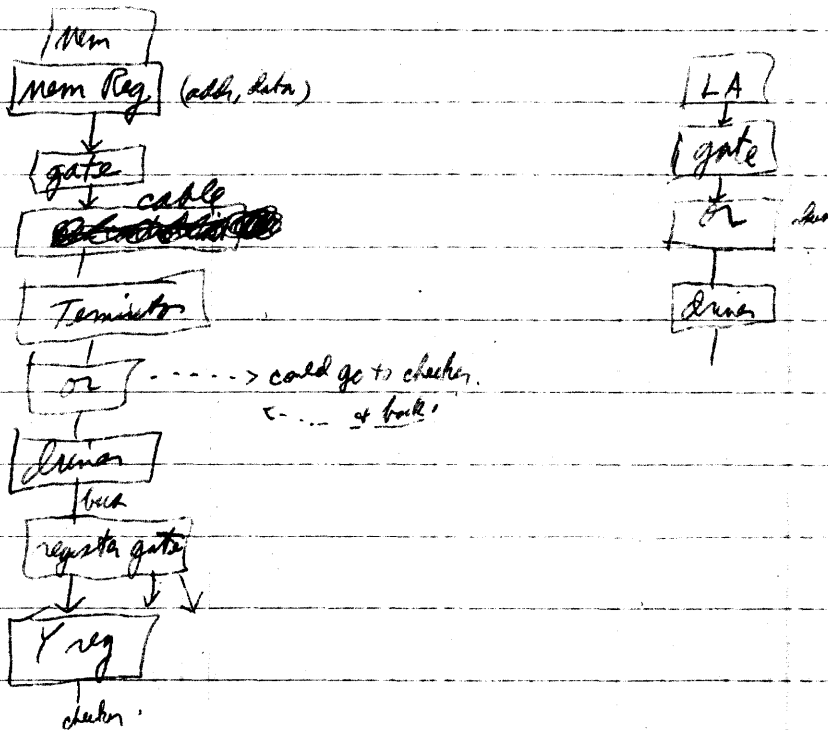 Mem
Mem Reg (addr, data)
gate
cable
Terminator
or
could go to checker.
<-.... & back.
driver
bus
register gate
Y reg
checker.
LA
gate
or
driver